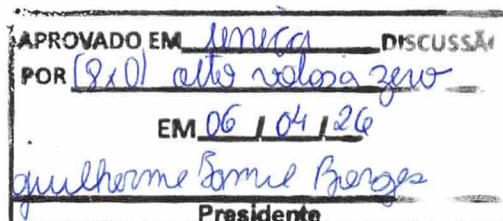 APROVADO EM única DISCUSSÃ
POR (8x0) oito votos a zero
EM 06 / 04 / 26
Guilherme Borges
Presidente